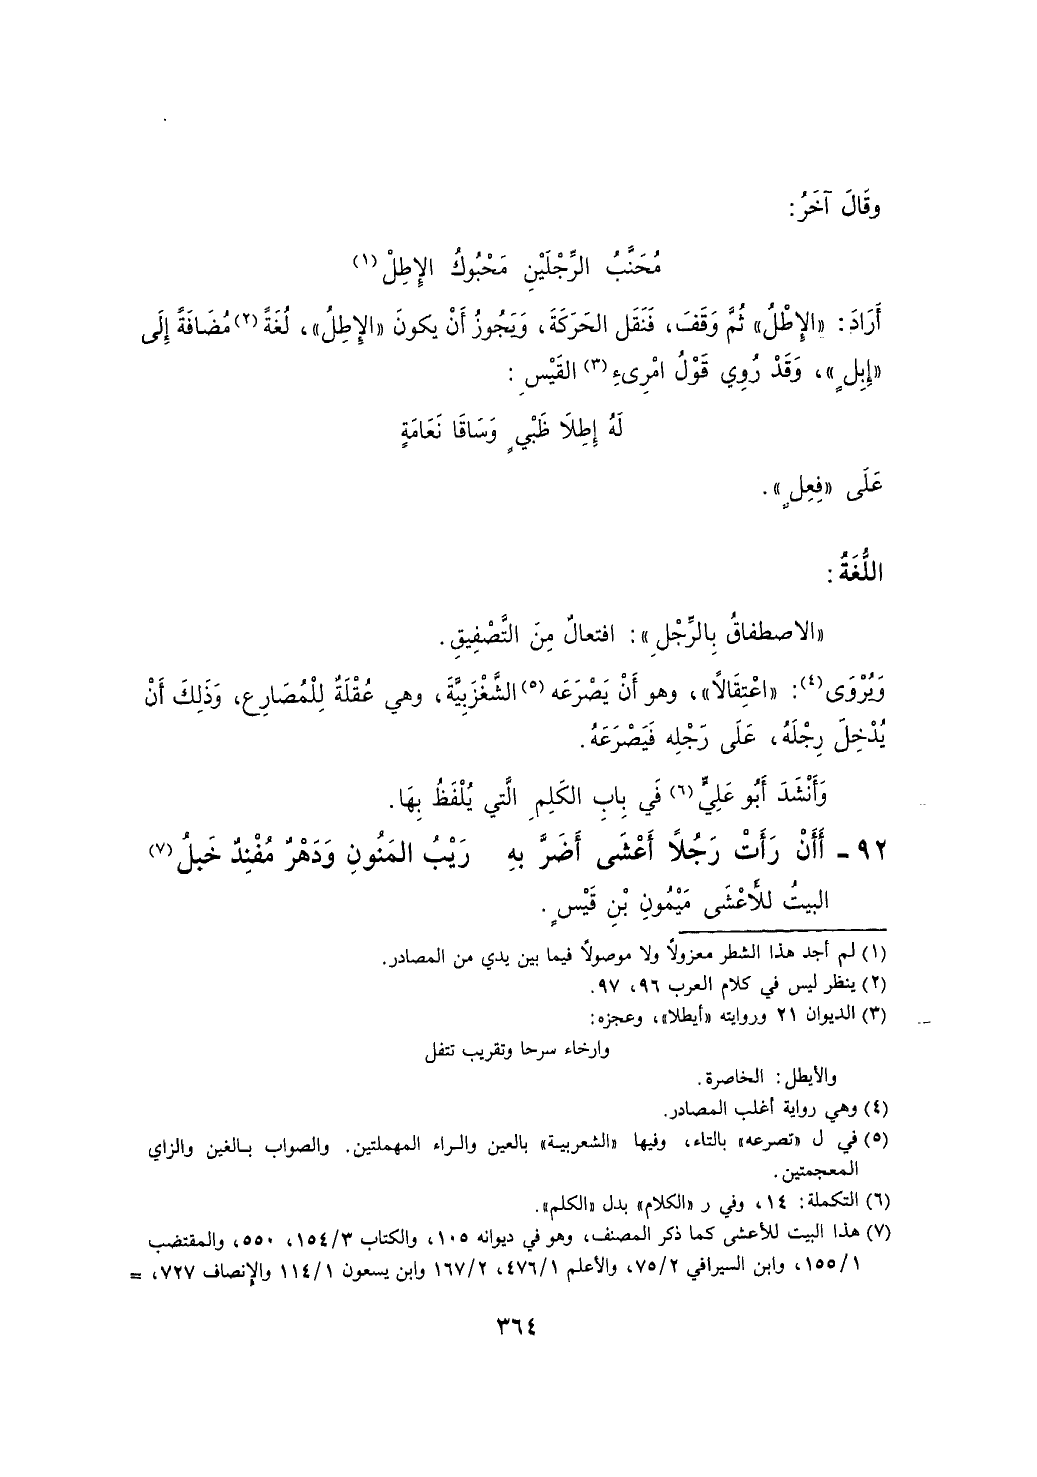 وقَالَ آخَرُ:
مُحَنَّبُ الرِّجْلَيْنِ مَحْبُوكُ الإِطِلْ (١)
أَرَادَ: «الإِطْلُ» ثُمَّ وَقَفَ، فَنَقَل الحَرَكَةَ، وَيَجُوزُ أَنْ يكونَ «الإِطِلُ»، لُغَةً (٢) مُضَافَةً إِلَى
«إِبِلٍ»، وَقَدْ رُوِي قَوْلُ امْرِىءِ (٣) القَيْسِ:
لَهُ إِطِلَا ظَبْيٍ وَسَاقَا نَعَامَةٍ
عَلَى «فِعِلٍ».
اللُّغَةُ:
«الاصطفاقُ بِالرِّجْلِ»: افتعالٌ مِنَ التَّصْفِيقِ.
وَيُرْوَى (٤): «اعْتِقَالاً»، وهو أَنْ يَصْرَعَه (٥) الشَّغْزَبِيَّةَ، وهي عُقْلَةٌ لِلْمُصَارِعِ، وَذَلِكَ أَنْ
يُدْخِلَ رِجْلَهُ، عَلَى رَجْلِه فَيَصْرَعَهُ.
وَأَنْشَدَ أَبُو عَلِيٍّ (٦) فَي بِابِ الكَلِمِ الَّتي يُلْفَظُ بِهَا.
٩٢ - أَأَنْ رَأَتْ رَجُلاً أَعْشَى أَضَرَّ بهِ رَيْبُ المَنُونِ وَدَهْرٌ مُفْنِدٌ خَبِلُ (٧)
البيتُ للأَعْشَى مَيْمُونِ بْنِ قَيْسٍ.
(١) لم أجد هذا الشطر معزولاً ولا موصولاً فيما بين يدي من المصادر.
(٢) ينظر ليس في كلام العرب ٩٦، ٩٧.
(٣) الديوان ٢١ وروايته «أيطلا»، وعجزه:
وارخاء سرحا وتقريب تتفل
والأيطل: الخاصرة.
(٤) وهي رواية أغلب المصادر.
(٥) في ل «تصرعه» بالتاء، وفيها «الشعربية» بالعين والراء المهملتين. والصواب بالغين والزاي
المعجمتين.
(٦) التكملة: ١٤، وفي ر «الكلام» بدل «الكلم».
(٧) هذا البيت للأعشى كما ذكر المصنف، وهو في ديوانه ١٠٥، والكتاب ١٥٤/٣، ٥٥٠، والمقتضب
١٥٥/١، وابن السيرافي ٧٥/٢، والأعلم ٤٧٦/١، ١٦٧/٢ وابن يسعون ١١٤/١ والإنصاف ٧٢٧، =
٣٦٤